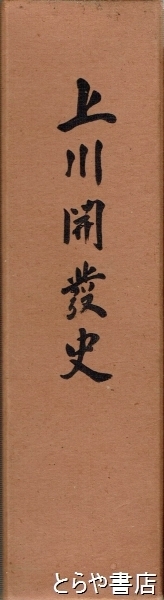 上川開發史
とらや書店